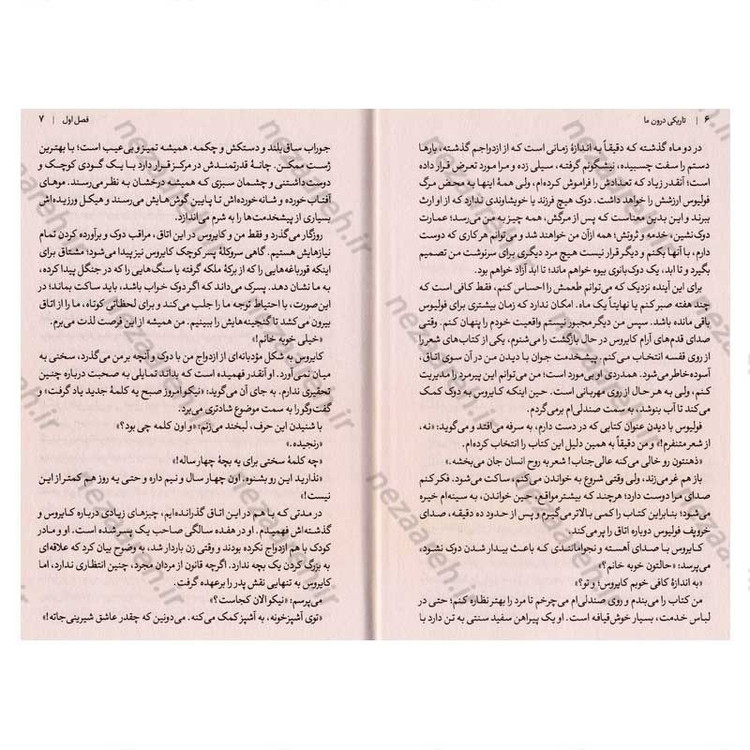 ۶ | تاریکی درون ما
در دو ماه گذشته که دقیقاً به اندازهٔ زمانی است که از ازدواجم گذشته، بارها
دستم را سفت چسبیده، نیشگونم گرفته، سیلی زده و مرا مورد تعرض قرار داده
است؛ آنقدر زیاد که تعدادش را فراموش کرده‌ام، ولی همهٔ اینها به محض مرگ
فولیوس ارزشش را خواهد داشت. دوک هیچ فرزند یا خویشاوندی ندارد که از او ارث
ببرند و این بدین معناست که پس از مرگش، همه چیز به من می‌رسد؛ عمارت
دوک‌نشین، خدمه و ثروتش؛ همه ازآن من خواهند شد و می‌توانم هر کاری که دوست
دارم، با آنها بکنم و دیگر قرار نیست هیچ مرد دیگری برای سرنوشت من تصمیم
بگیرد و تا ابد، یک دوک‌بانوی بیوه خواهم ماند؛ تا ابد آزاد خواهم بود.
برای این آینده نزدیک که می‌توانم طعمش را احساس کنم، فقط کافی است که
چند هفته صبر کنم یا نهایتاً یک ماه. امکان ندارد که زمان بیشتری برای فولیوس
باقی مانده باشد. سپس من دیگر مجبور نیستم واقعیت خودم را پنهان کنم. وقتی
صدای قدم‌های آرام کایروس در حال بازگشت را می‌شنوم، یکی از کتاب‌های شعر را
از روی قفسه انتخاب می‌کنم. پیشخدمت جوان با دیدن من در آن سوی اتاق،
آسوده‌خاطر می‌شود. همدردی او بی‌مورد است؛ من می‌توانم این پیرمرد را مدیریت
کنم، ولی به هر حال از روی مهربانی است. حین اینکه کایروس به دوک کمک
می‌کند تا آب بنوشد، به سمت صندلی‌ام برمی‌گردم.
فولیوس با دیدن عنوان کتابی که در دست دارم، به سرفه می‌افتد و می‌گوید: «نه،
از شعر متنفرم!» و من دقیقاً به همین دلیل این کتاب را انتخاب کرده‌ام.
«ذهنتون رو خالی می‌کنه عالی‌جناب! شعر به روح انسان جان می‌بخشه.»
باز هم غر می‌زند، ولی وقتی شروع به خواندن می‌کنم، ساکت می‌شود. فکر کنم
صدای مرا دوست دارد؛ هرچند که بیشتر مواقع، حین خواندن، به سینه‌ام خیره
می‌شود؛ بنابراین کتاب را کمی بالاتر می‌گیرم و پس از حدود ده دقیقه، صدای
خروپف فولیوس دوباره اتاق را پر می‌کند.
کایروس با صدای آهسته و نجوامانندی که باعث بیدار شدن دوک نشود،
می‌پرسد: «حالتون خوبه خانم؟»
«به اندازهٔ کافی خوبم کایروس؛ و تو؟»
من کتاب را می‌بندم و روی صندلی‌ام می‌چرخم تا مرد را بهتر نظاره کنم؛ حتی در
لباس خدمت، بسیار خوش‌قیافه است. او یک پیراهن سفید سنتی به تن دارد با
فصل اول | ۷
جوراب ساق‌بلند و دستکش و چکمه. همیشه تمیز و بی‌عیب است؛ با بهترین
ژست ممکن. چانهٔ قدرتمندش در مرکز قرار دارد با یک گودی کوچک و
دوست‌داشتنی و چشمان سبزی که همیشه درخشان به نظر می‌رسند. موهای
آفتاب خورده و شانه‌خورده‌اش تا پایین گوش‌هایش می‌رسند و هیکل ورزیده‌اش
بسیاری از پیشخدمت‌ها را به شرم می‌اندازد.
روزگار می‌گذرد و فقط من و کایروس در این اتاق، مراقب دوک و برآورده کردن تمام
نیازهایش هستیم. گاهی سروکلهٔ پسر کوچک کایروس نیز پیدا می‌شود؛ مشتاق برای
اینکه قورباغه‌هایی را که از برکهٔ ملکه گرفته یا سنگ‌هایی را که در جنگل پیدا کرده،
به ما نشان دهد. پسرک می‌داند که اگر دوک خراب باشد، باید ساکت بماند؛ در
این‌صورت، با احتیاط توجه ما را جلب می‌کند و برای لحظاتی کوتاه، ما را از اتاق
بیرون می‌کشد تا گنجینه‌هایش را ببینیم. من همیشه از این فرصت لذت می‌برم.
«خیلی خوبه خانم!»
کایروس به شکل مؤدبانه‌ای از ازدواج من با دوک و آنچه بر من می‌گذرد، سخنی به
میان نمی‌آورد. او آنقدر فهمیده است که بداند تمایلی به صحبت درباره چنین
تحقیری ندارم. به جای آن می‌گوید: «نیکو امروز صبح یه کلمهٔ جدید یاد گرفت» و
گفت‌وگو را به سمت موضوع شادتری می‌برد.
با شنیدن این حرف، لبخند می‌زنم: «و اون کلمه چی بود؟»
«رنجیده.»
«چه کلمهٔ سختی برای یه بچهٔ چهار ساله!»
«نذارید این رو بشنوه. اون چهار سال و نیم داره و حتی یه روز هم کمتر از این
نیست!»
در مدتی که با هم در این اتاق گذرانده‌ایم، چیزهای زیادی درباره کایروس و
گذشته‌اش فهمیدم. او در هفده سالگی صاحب یک پسر شده است. او و مادر
کودک با هم ازدواج نکرده بودند و وقتی زن باردار شد، به وضوح بیان کرد که علاقه‌ای
به بزرگ کردن یک بچه ندارد. اگرچه قانون از مردان مجرد، چنین انتظاری ندارد، اما
کایروس به تنهایی نقش پدر را برعهده گرفت.
می‌پرسم: «نیکو الان کجاست؟»
«توی آشپزخونه، به آشپز کمک می‌کنه. می‌دونین که چقدر عاشق شیرینی‌جاته!»
nezaaeh.ir